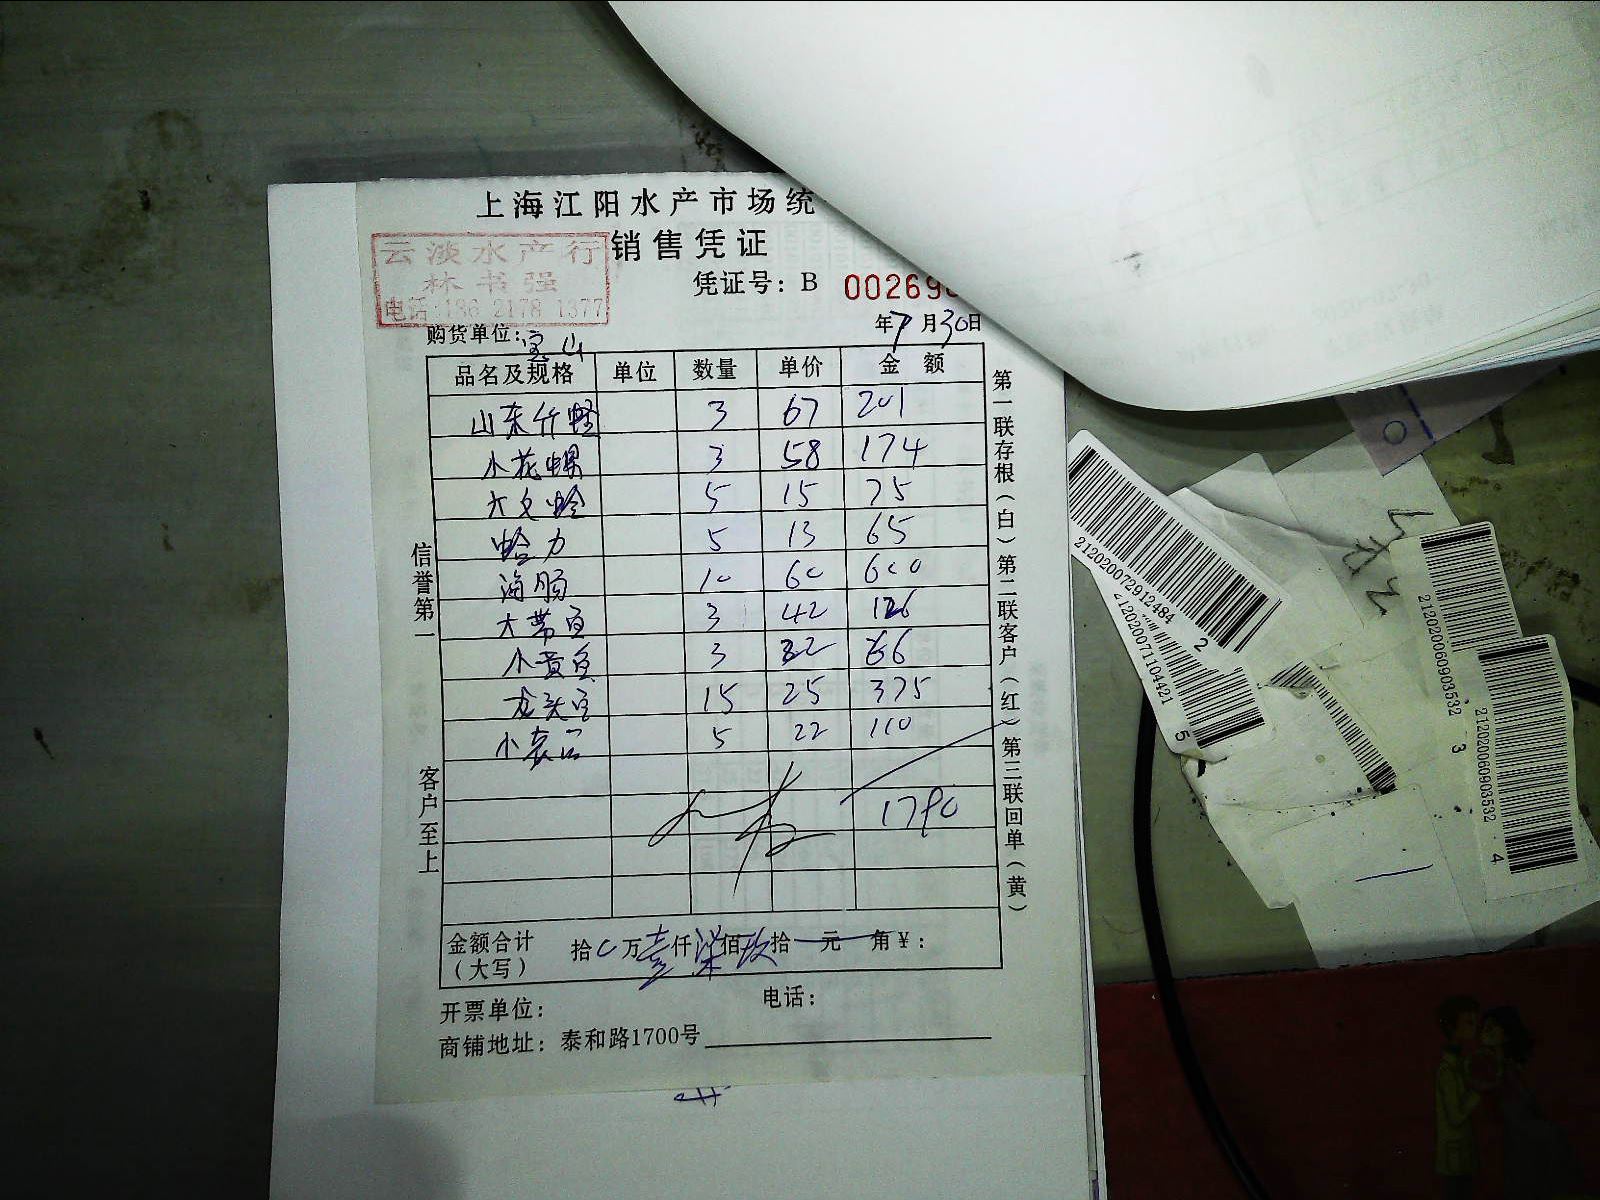 上海江阳水产市场统
销售凭证
云淡水产行
林书强
电话:186 2178 1377
凭证号: B 00269
年7月30日
购货单位: 宝山
品名及规格 单位 数量 单价 金额
山东竹蛏 3 67 201
小花螺 3 58 174
大文蛤 5 15 75
蛤力 5 13 65
海肠 10 60 600
大带鱼 3 42 126
小黄鱼 3 22 66
龙头鱼 15 25 375
小 5 22 110
1790
金额合计 拾 万壹仟柒佰玖拾 元 角¥:
(大写)
开票单位: 电话:
商铺地址: 泰和路1700号
信誉第一
客户至上
第一联存根(白)第二联客户(红)第三联回单(黄)
21202007291248​4 2
2120200711044​21 5
2120200609035​32 3
2120200609035​32 4